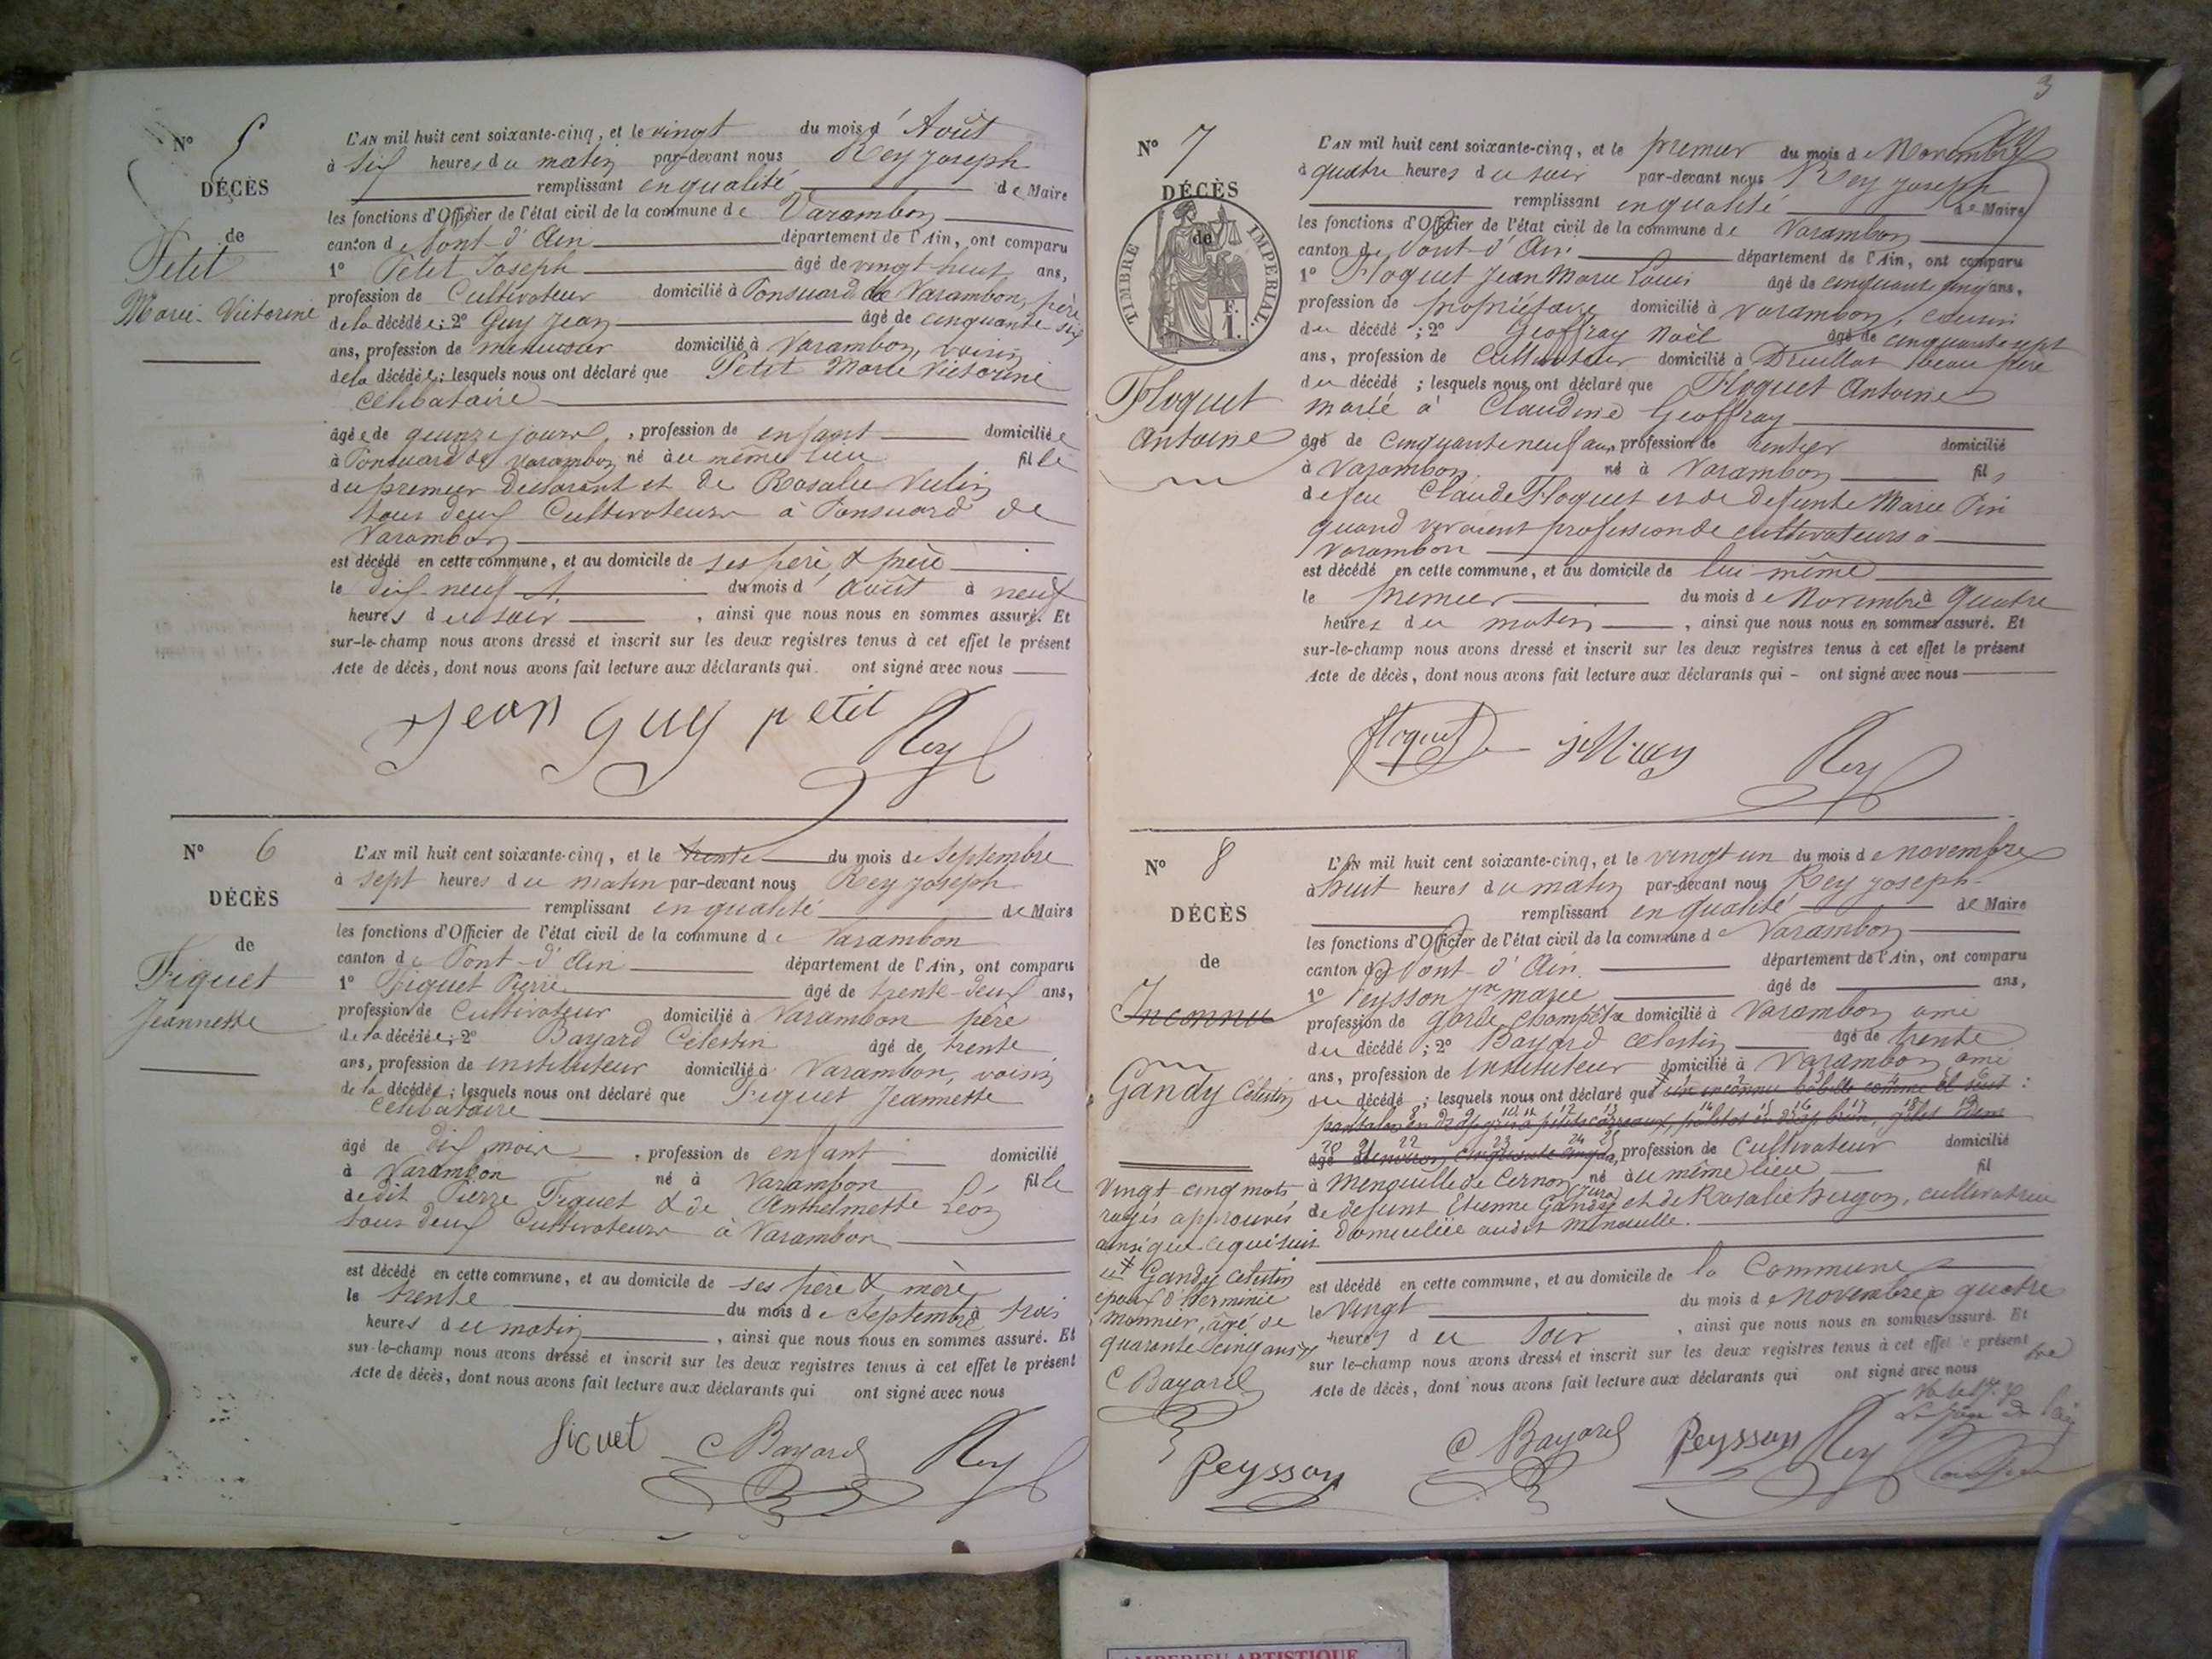 N° 5
DÉCÈS
de
Petit
Marie-Victorine
L'AN mil huit cent soixante-cinq, et le vingt du mois d'Août
à six heures du matin par-devant nous Rey Joseph
remplissant en qualité de Maire
les fonctions d'Officier de l'état civil de la commune de Varambon
canton de Pont-d'Ain département de l'Ain, ont comparu
1° Petit Joseph âgé de vingt huit ans,
profession de Cultivateur domicilié à Ponsuard de Varambon, père
de la décédée; 2° Guy Jean âgé de cinquante six
ans, profession de menuisier domicilié à Varambon, voisin
de la décédée; lesquels nous ont déclaré que Petit Marie Victorine
célibataire
âgée de quinze jours, profession de enfant domiciliée
à Ponsuard de Varambon né au même lieu fille
du premier déclarant et de Rosalie Vulin
tous deux Cultivateurs à Ponsuard de
Varambon
est décédé en cette commune, et au domicile de ses père & mère
le dix-neuf du mois d'Août à neuf
heures du soir, ainsi que nous nous en sommes assuré. Et
sur-le-champ nous avons dressé et inscrit sur les deux registres tenus à cet effet le présent
Acte de décès, dont nous avons fait lecture aux déclarants qui ont signé avec nous
Jean Guy petit Rey
N° 6
DÉCÈS
de
Fiquet
Jeannette
L'AN mil huit cent soixante-cinq, et le trente du mois de Septembre
à sept heures du matin par-devant nous Rey Joseph
remplissant en qualité de Maire
les fonctions d'Officier de l'état civil de la commune de Varambon
canton de Pont-d'Ain département de l'Ain, ont comparu
1° Fiquet Pierre âgé de trente-deux ans,
profession de Cultivateur domicilié à Varambon père
de la décédée; 2° Bayard Célestin âgé de trente
ans, profession de instituteur domicilié à Varambon, voisin
de la décédée; lesquels nous ont déclaré que Fiquet Jeannette
célibataire
âgé de dix mois, profession de enfant domicilié
à Varambon né à Varambon fille
de dit Pierre Fiquet & de Anthelmette Léon
tous deux Cultivateurs à Varambon
est décédé en cette commune, et au domicile de ses père & mère
le trente du mois de Septembre à trois
heures du matin, ainsi que nous nous en sommes assuré. Et
sur-le-champ nous avons dressé et inscrit sur les deux registres tenus à cet effet le présent
Acte de décès, dont nous avons fait lecture aux déclarants qui ont signé avec nous
ficuet C Bayard Rey
3
N° 7
DÉCÈS
de
TIMBRE IMPÉRIAL.
F.
1.
Floquet
Antoine
L'AN mil huit cent soixante-cinq, et le premier du mois de Novembre
à quatre heures du soir par-devant nous Rey Joseph
remplissant en qualité de Maire
les fonctions d'Officier de l'état civil de la commune de Varambon
canton de Pont-d'Ain département de l'Ain, ont comparu
1° Floquet Jean Marie Louis âgé de cinquante cinq ans,
profession de propriétaire domicilié à Varambon, cousin
du décédé; 2° Geoffray Noël âgé de cinquante sept
ans, profession de Cultivateur domicilié à Druillat beau frère
du décédé; lesquels nous ont déclaré que Floquet Antoine
marié à Claudine Geoffray
âgé de cinquante neuf ans, profession de rentier domicilié
à Varambon né à Varambon fils
de feu Claude Floquet et de défunte Marie Pin
quand vivaient profession de cultivateurs à
Varambon
est décédé en cette commune, et au domicile de lui même
le premier du mois de Novembre à quatre
heures du matin, ainsi que nous nous en sommes assuré. Et
sur-le-champ nous avons dressé et inscrit sur les deux registres tenus à cet effet le présent
Acte de décès, dont nous avons fait lecture aux déclarants qui - ont signé avec nous
Floquet Rey
N° 8
DÉCÈS
de
Inconnu
Gandy Célestin
L'AN mil huit cent soixante-cinq, et le vingt un du mois de novembre
à huit heures du matin par-devant nous Rey Joseph
remplissant en qualité de Maire
les fonctions d'Officier de l'état civil de la commune de Varambon
canton de Pont-d'Ain département de l'Ain, ont comparu
1° Peysson Jn marie âgé de ans,
profession de garde champêtre domicilié à Varambon ami
du décédé; 2° Bayard Célestin âgé de trente
ans, profession de Instituteur domicilié à Varambon ami
du décédé; lesquels nous ont déclaré que un inconnu habillé comme il suit:
pantalon en drap gris à petits carreaux, paletot en drap bleu, gilet idem
âgé d'environ cinquante cinq ans, profession de Cultivateur domicilié
à Menouille de Cernon (Jura) né au même lieu fil
de défunt Etienne Gandy et de Rosalie Bergon, cultivatrice
domiciliée audit Menouille.
est décédé en cette commune, et au domicile de la Commune
le Vingt du mois de novembre à quatre
heures du Soir, ainsi que nous nous en sommes assuré. Et
sur-le-champ nous avons dressé et inscrit sur les deux registres tenus à cet effet le présent
Acte de décès, dont nous avons fait lecture aux déclarants qui ont signé avec nous
Vingt-cinq mots
rayés approuvés
ainsi que ce qui suit
Gandy Célestin
époux d'Herminie
Monnier, âgé de
quarante cinq ans
C Bayard
Peysson
C Bayard Peysson Rey